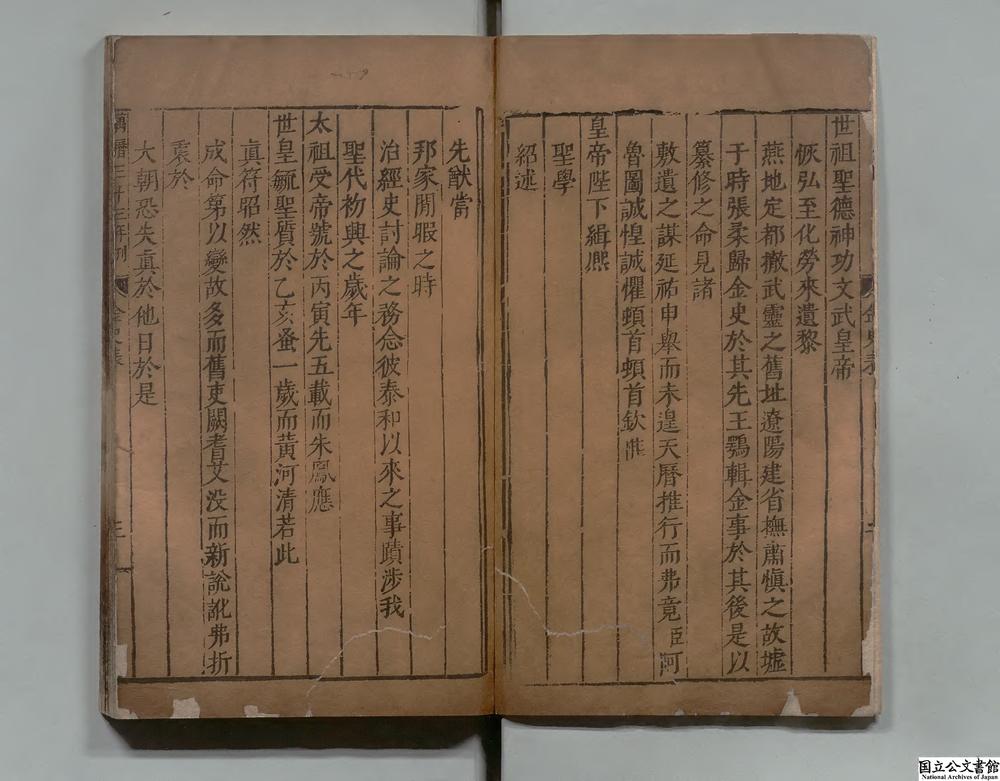 世祖聖德神功文武皇帝
恢弘至化勞來遺黎
燕地定都撤武靈之舊址遼陽建省撫肅愼之故墟
于時張柔歸金史於其先王鶚輯金事於其後是以
纂修之命見諸
敷遺之謀延祐申舉而未遑天曆推行而弗竟臣阿
魯圖誠惶誠懼頓首頓首欽惟
皇帝陛下緝熈
聖學
紹述
先猷當
邦家閒暇之時
治經史討論之務念彼泰和以來之事蹟涉我
聖代初興之歲年
太祖受帝號於丙寅先五載而朱鳳應
世皇毓聖質於乙亥蚤一歲而黃河清若此
眞符昭然
成命第以變故多而舊吏闕耆艾没而新說訛弗折
衷於
大朝恐失眞於他日於是
萬曆三十三年刊
金史表
國立公文書館
National Archives of Japan